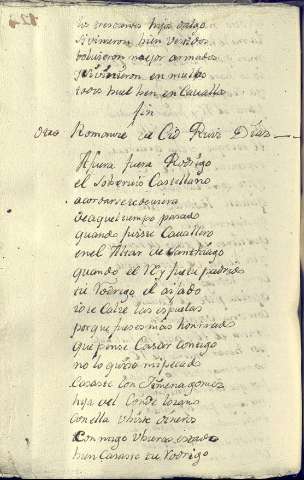 hija
si vinieron bien vestidos
bolvieron mejor armados
en mulas
todos buelben en Cavallo
fin
Otro Romance de Cid Ruis Días
Afuera fuera Rodrigo
el Soberuio Castellano
acordarsete deuiera
de aquel tiempo pasado
quando fuiste Cavallero
en el Altar de Santhiago
quando el Rey fue tu padrino
tu Rodrigo el aijado
io te Calse las espuelas
porque fueses mas honrrado
que pense Casar contigo
no lo quiso mi pecado
Casaste con Jimena gomes
hija del Conde losano
con ella uviste dineros
Conmigo ubieras estado
bien Casaste tu Rodrigo